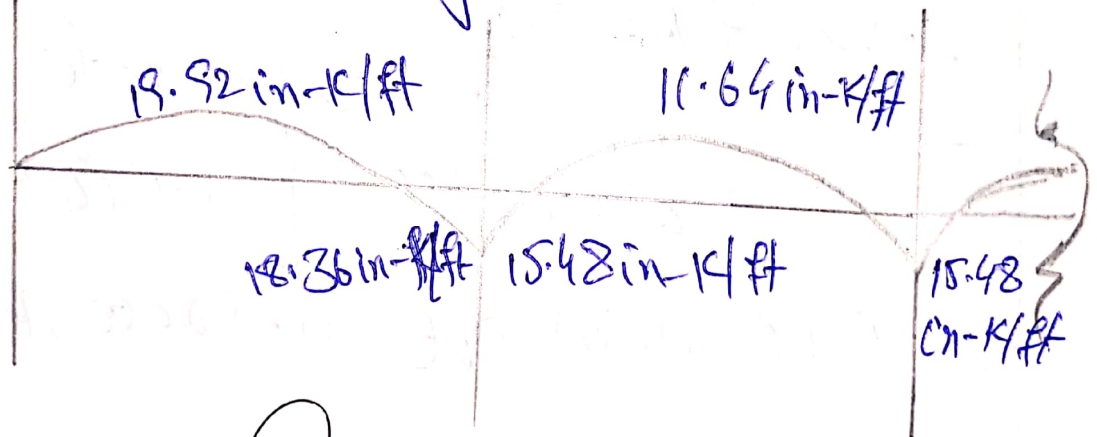 19.92 in-K/ft
11.64 in-K/ft
18.36 in-K/ft
15.48 in-K/ft
15.48
in-K/ft